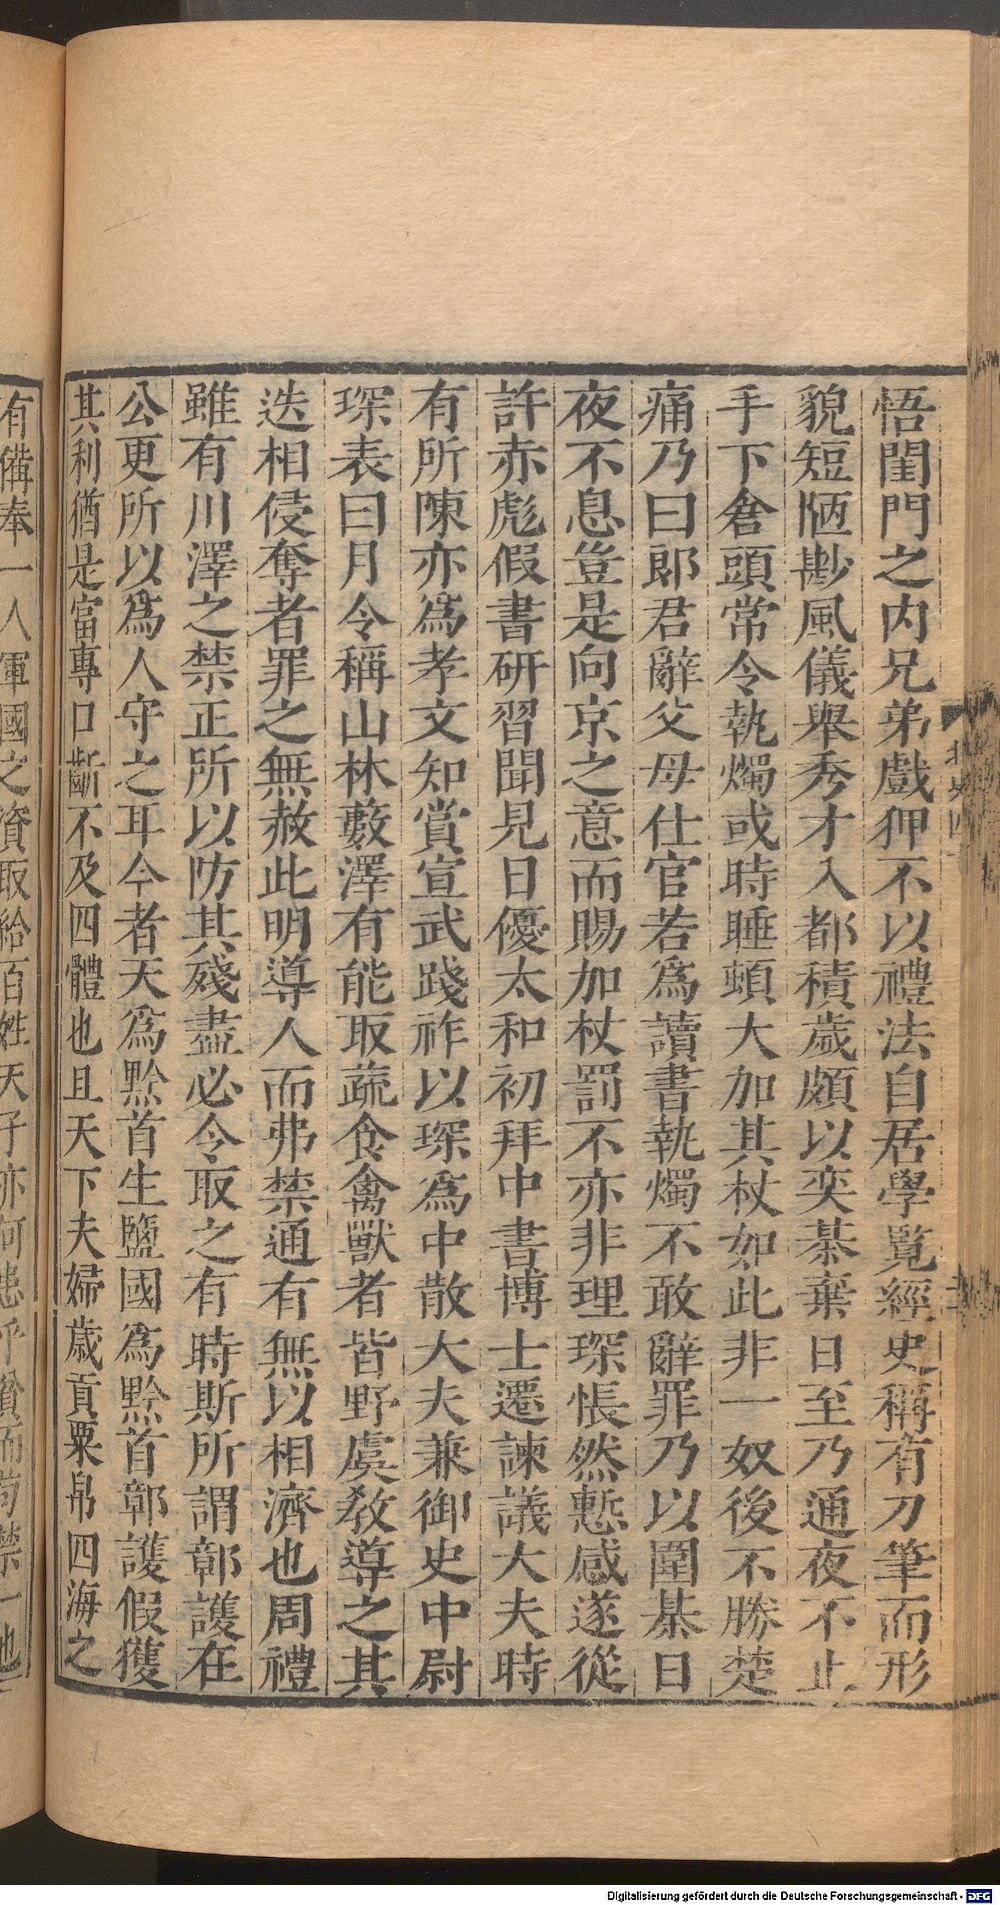 悟閨門之内兄弟戲狎不以禮法自居學覽經史稱有刀筆而形
貌短陋尠風儀舉秀才入都積歲頗以奕棊棄日至乃通夜不止
手下倉頭常令執燭或時睡頓大加其杖如此非一奴後不勝楚
痛乃曰郎君辭父母仕官若爲讀書執燭不敢辭罪乃以圍棊日
夜不息豈是向京之意而賜加杖罰不亦非理琛悵然慙感遂從
許赤彪假書研習聞見日優太和初拜中書博士遷諫議大夫時
有所陳亦爲孝文知賞宣武踐祚以琛爲中散大夫兼御史中尉
琛表曰月令稱山林藪澤有能取蔬食禽獸者皆野虞敎導之其
迭相侵奪者罪之無赦此明導人而弗禁通有無以相濟也周禮
雖有川澤之禁正所以防其殘盡必令取之有時斯所謂鄣護在
公更所以爲人守之耳今者天爲黔首生鹽國爲黔首鄣護假獲
其利猶是富專口斷不及四體也且天下夫婦歲貢粟帛四海之
有備奉一人軍國之資取給百姓天子亦何患乎貧而苟禁一也
北史四
Digitalisierung gefördert durch die Deutsche Forschungsgemeinschaft - DFG